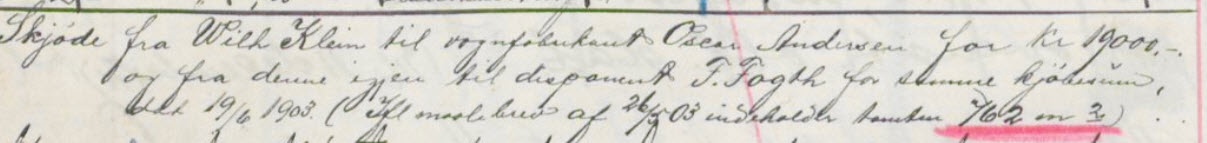 Skjöde fra Wilh Klein til vognfabrikant Oscar Andersen for Kr 19000,-.
og fra denne igjen til disponent T. Fogth for samme kjöbesum,
dat 19/6 1903. (Ifl maalebrev af 26/5 03 indeholder tomten 762 m2)